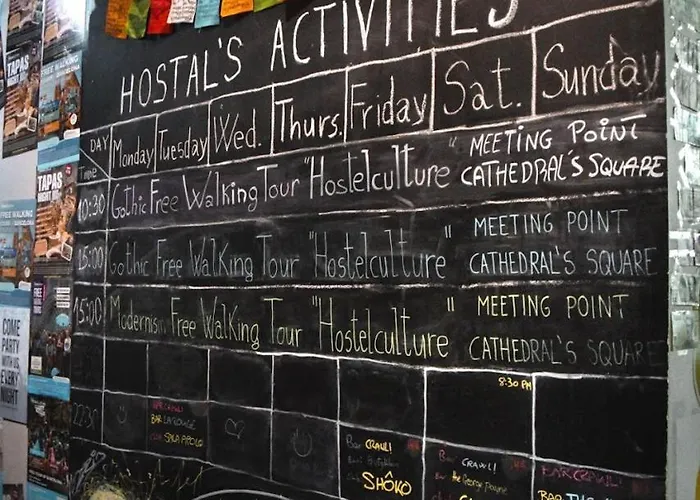 HOSTAL'S ACTIVITIES
DAY Time Monday Tuesday Wed. Thurs. Friday Sat. Sunday
10:30 Gothic Free Walking Tour "Hostelculture" MEETING POINT CATHEDRAL'S SQUARE
15:00 Gothic Free Walking Tour "Hostelculture" MEETING POINT CATHEDRAL'S SQUARE
15:00 Modernism Free Walking Tour "Hostelculture" MEETING POINT CATHEDRAL'S SQUARE
8:30 PM
22:30
BAR CRAWL!
BAR LA ROUGE
SALA APOLO
Bar CRAWL!
SHÔKO
Bar CRAWL!
the George Payne
BAR CRAWL!
BAR
TAPAS
FREE WALKING
TAPAS
FREE WALKING
COME
PARTY
WITH US
EVERY
NIGHT